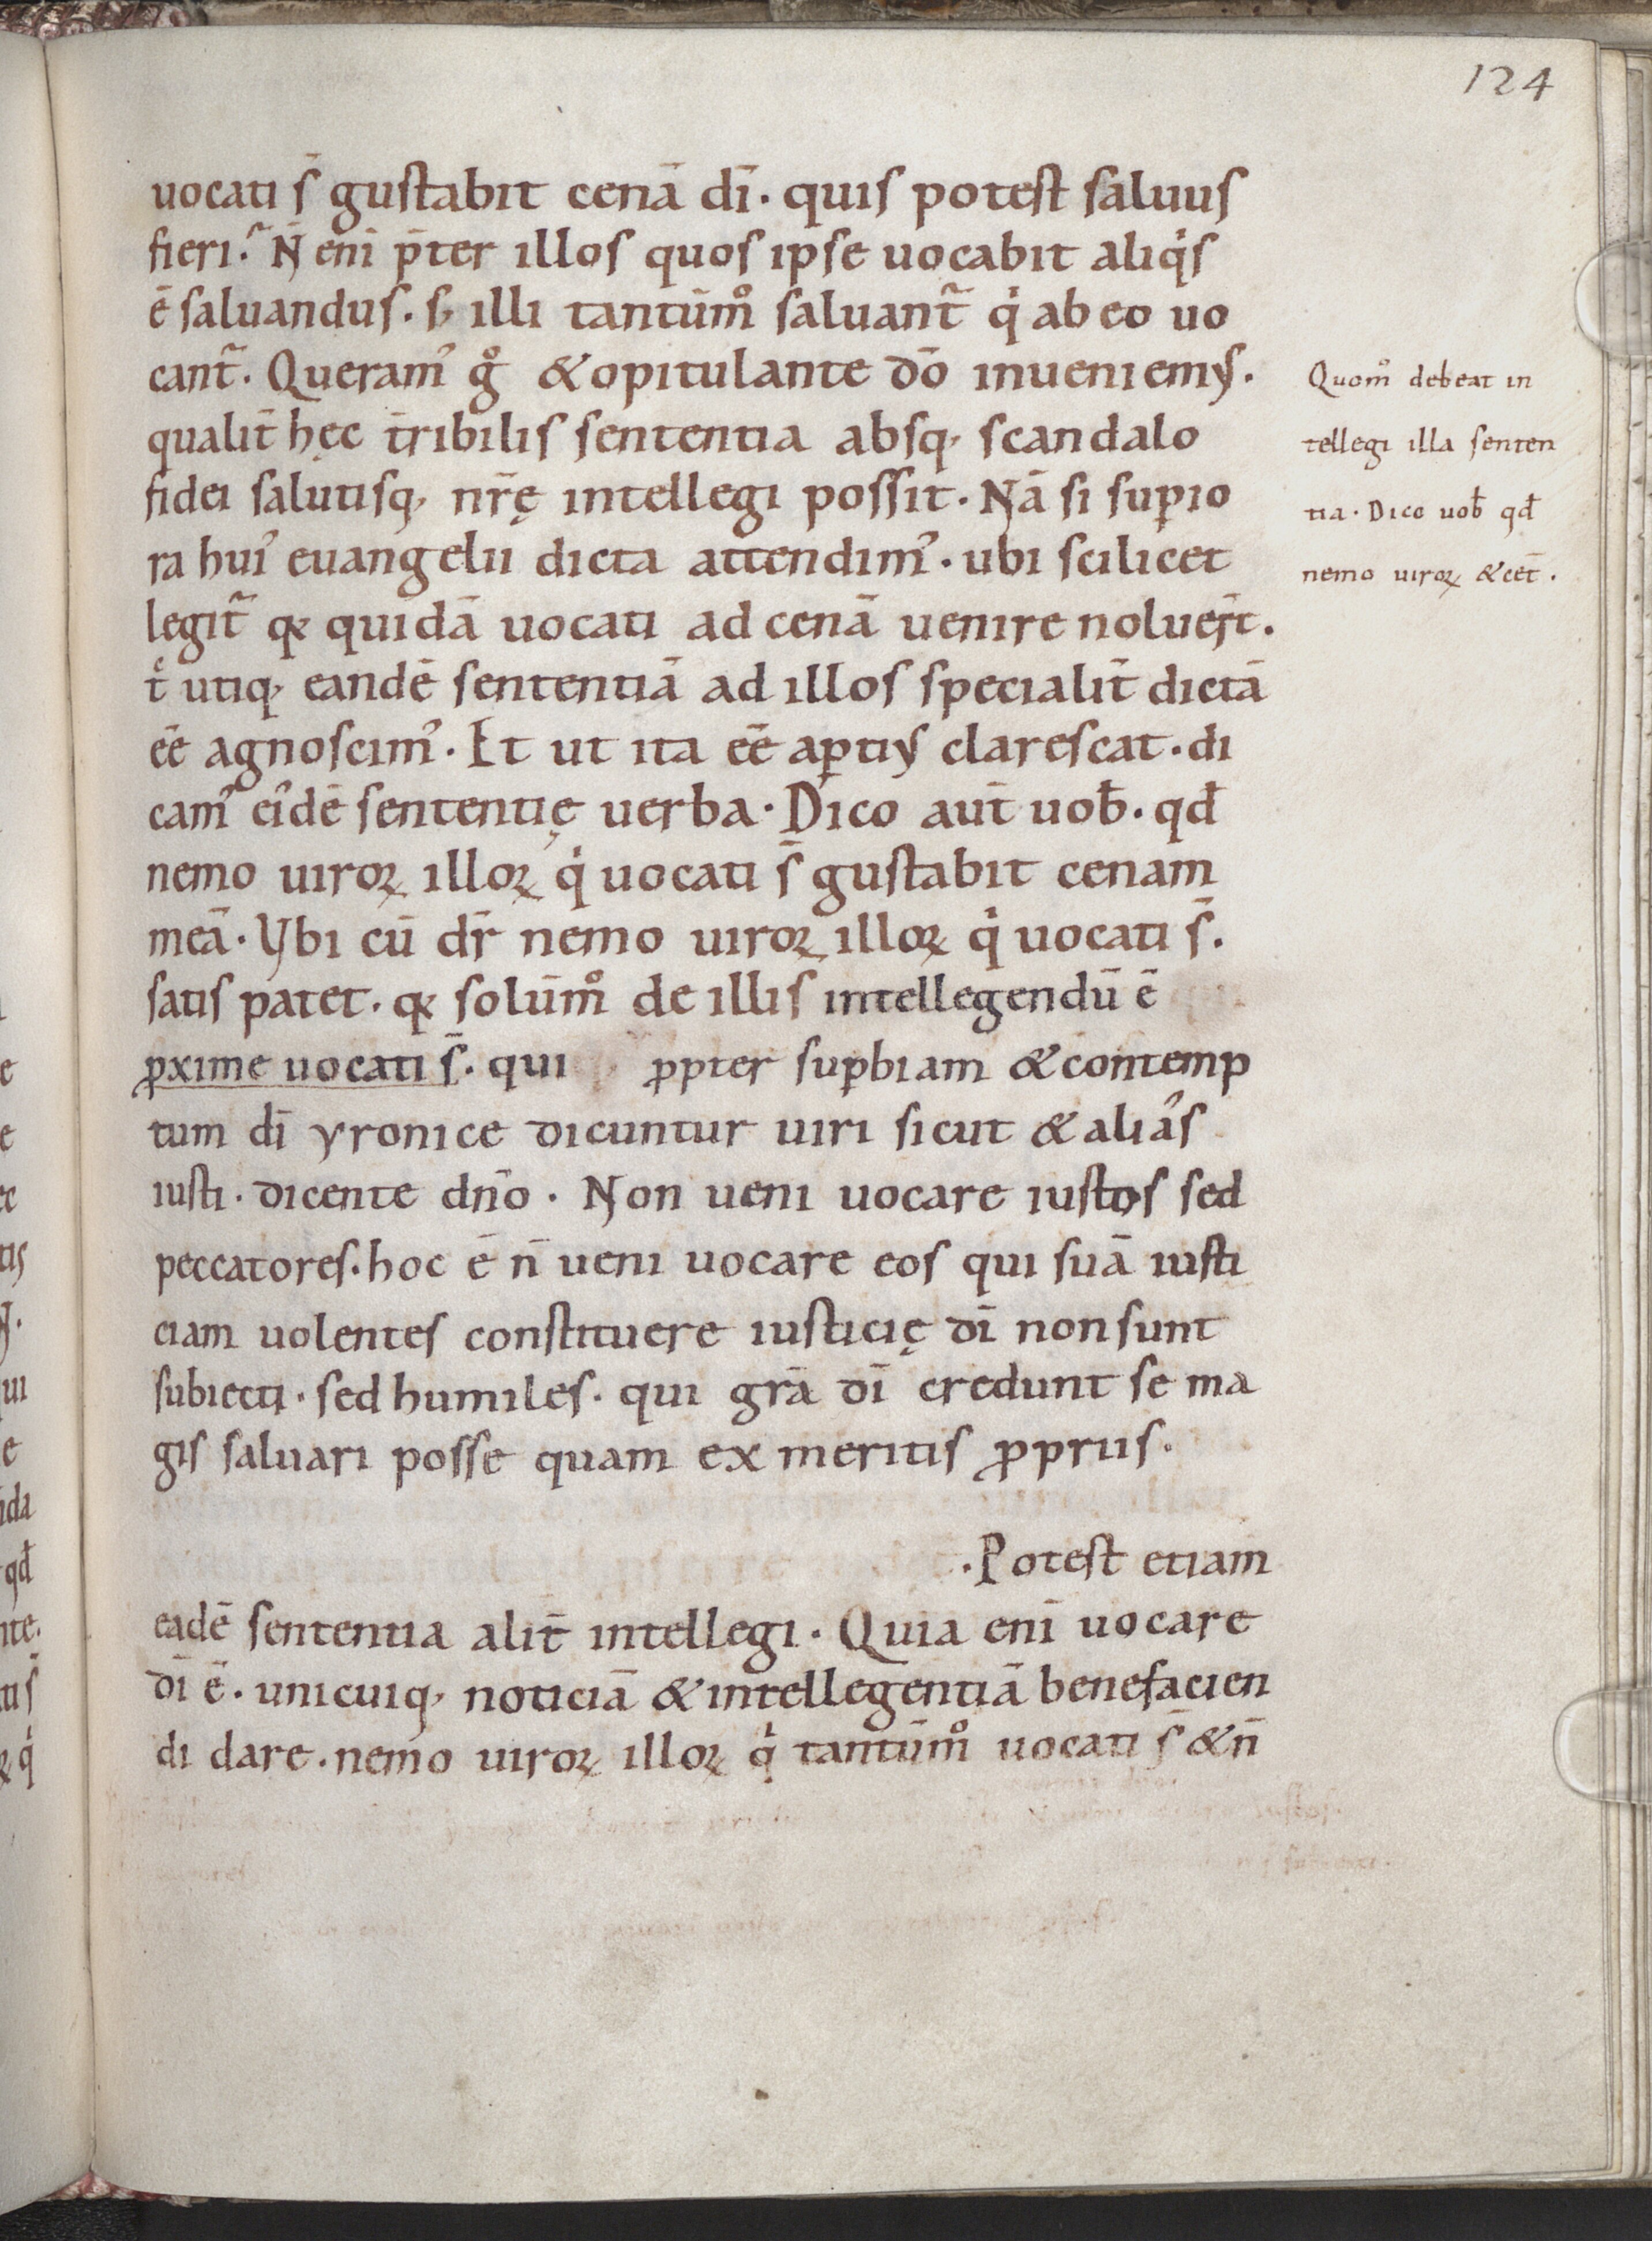 124
uocati s̄ gustabit cenā dī. quis potest saluus
fieri? N̄ enī p̄ter illos quos ipse uocabit aliqͥs
ē saluandus. s; illi tantūmͦ saluant᷑ qͥ ab eo uo
cant᷑. Queramꝰ gͦ & opitulante dō inueniemus.
qualit̄ hęc t̄ribilis sententia absq; scandalo
fidei salutisq; nr̄ę intellegi possit. Nā si supio
ra huiꝰ euangelii dicta attendimꝰ. ubi scilicet
legit᷑ qꝛ quidā uocati ad cenā uenire noluer̄t.
tͨ utiq; eandē sententiā ad illos specialit̄ dictā
eē agnoscimꝰ. Et ut ita eē aꝑtius clarescat. di
camꝰ eiꝰdē sententię uerba. Dico aut̄ uob̄. qđ
nemo uiroꝝ illoꝝ qͥ uocati s̄ gustabit cenam
meā. Vbi cū dr̄ nemo uiroꝝ illoꝝ qͥ uocati s̄.
satis patet. qꝛ solūmͦ de illis intellegendū ē
ꝓxime uocati s̄. qui ꝓpter suꝑbiam & contemp
tum dī yronice dicuntur uiri sicut & alias
iusti. dicente dn̄o. Non ueni uocare iustos sed
peccatores. hoc ē n̄ ueni uocare eos qui suā iusti
ciam uolentes constituere iusticię dī non sunt
subiecti. sed humiles. qui grā dī credunt se ma
gis saluari posse quam ex meritis ꝓpriis.
.Potest etiam
eadē sententia alit̄ intellegi. Quia enī uocare
dī ē. unicuiq; noticiā & intellegentiā benefacien
di dare. nemo uiroꝝ illoꝝ qͥ tantūmͦ uocati s̄ & n̄
Quomͦ debeat in
tellegi illa senten
tia. Dico uob̄ qđ
nemo uiroꝝ & cet̄.